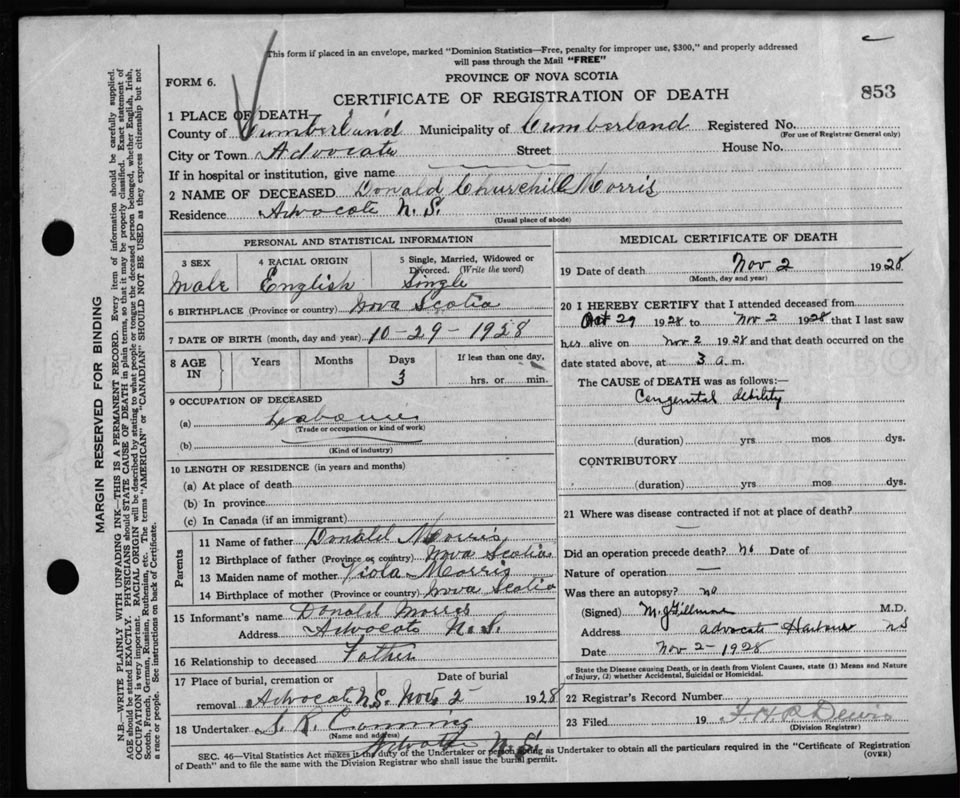 This form if placed in an envelope, marked "Dominion Statistics—Free, penalty for improper use, $300," and properly addressed
will pass through the Mail "FREE"
FORM 6.
PROVINCE OF NOVA SCOTIA
CERTIFICATE OF REGISTRATION OF DEATH
853
1 PLACE OF DEATH
County of Cumberland Municipality of Cumberland Registered No.
(For use of Registrar General only)
City or Town Advocate Street House No.
If in hospital or institution, give name
2 NAME OF DECEASED Donald Churchill Morris
Residence Advocate N.S.
(Usual place of abode)
PERSONAL AND STATISTICAL INFORMATION
3 SEX 4 RACIAL ORIGIN 5 Single, Married, Widowed or
Divorced. (Write the word)
Male English Single
6 BIRTHPLACE (Province or country) Nova Scotia
7 DATE OF BIRTH (month, day and year) 10-29-1928
8 AGE IN Years Months Days If less than one day,
3 hrs. or min.
9 OCCUPATION OF DECEASED
(a)
(Trade or occupation or kind of work)
(b)
(Kind of industry)
10 LENGTH OF RESIDENCE (in years and months)
(a) At place of death
(b) In province
(c) In Canada (if an immigrant)
Parents
11 Name of father Donald Morris
12 Birthplace of father (Province or country) Nova Scotia
13 Maiden name of mother Viola Morris
14 Birthplace of mother (Province or country) Nova Scotia
15 Informant's name Donald Morris
Address Advocate N.S.
16 Relationship to deceased Father
17 Place of burial, cremation or Date of burial
removal Advocate N.S. Nov 2- 1928
18 Undertaker
(Name and address)
Advocate N.S.
MEDICAL CERTIFICATE OF DEATH
19 Date of death Nov 2 1928
(Month, day and year)
20 I HEREBY CERTIFY that I attended deceased from
Oct 29 1928 to Nov 2 1928 that I last saw
alive on Nov 2 1928 and that death occurred on the
date stated above, at 3 a.m.
The CAUSE of DEATH was as follows:—
Congenital debility
(duration) yrs mos dys.
CONTRIBUTORY
(duration) yrs mos dys.
21 Where was disease contracted if not at place of death?
Did an operation precede death? No Date of
Nature of operation —
Was there an autopsy? no
(Signed) M.D.
Address Advocate Harbour NS
Date Nov 2- 1928
State the Disease causing Death, or in death from Violent Causes, state (1) Means and Nature
of Injury, (2) whether Accidental, Suicidal or Homicidal.
22 Registrar's Record Number
23 Filed 19
(Division Registrar)
SEC. 46—Vital Statistics Act makes it the duty of the Undertaker or person acting as Undertaker to obtain all the particulars required in the "Certificate of Registration
of Death" and to file the same with the Division Registrar who shall issue the burial permit. (OVER)
MARGIN RESERVED FOR BINDING
N.B.—WRITE PLAINLY WITH UNFADING INK—THIS IS A PERMANENT RECORD. Every item of information should be carefully supplied.
AGE should be stated EXACTLY. PHYSICIANS should STATE CAUSE OF DEATH in plain terms, so that it may be properly classified. Exact statement of
OCCUPATION is very important. RACIAL ORIGIN will be described by stating to what people or tongue the deceased person belonged, whether English, Irish,
Scotch, French, German, Russian, Ruthenian, etc. The terms "AMERICAN" or "CANADIAN" SHOULD NOT BE USED as they express citizenship but not
a race or people. See instructions on back of Certificate.